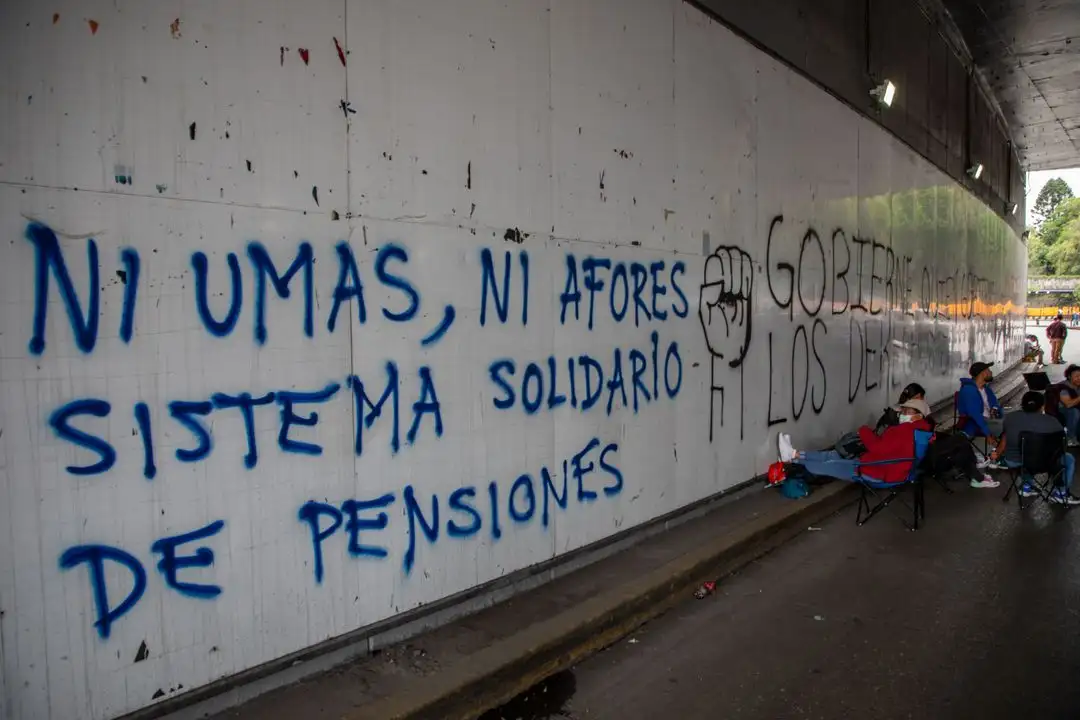 NI UMAS, NI AFORES
SISTEMA SOLIDARIO
DE PENSIONES
GOBIERNE QUIEN
LOS